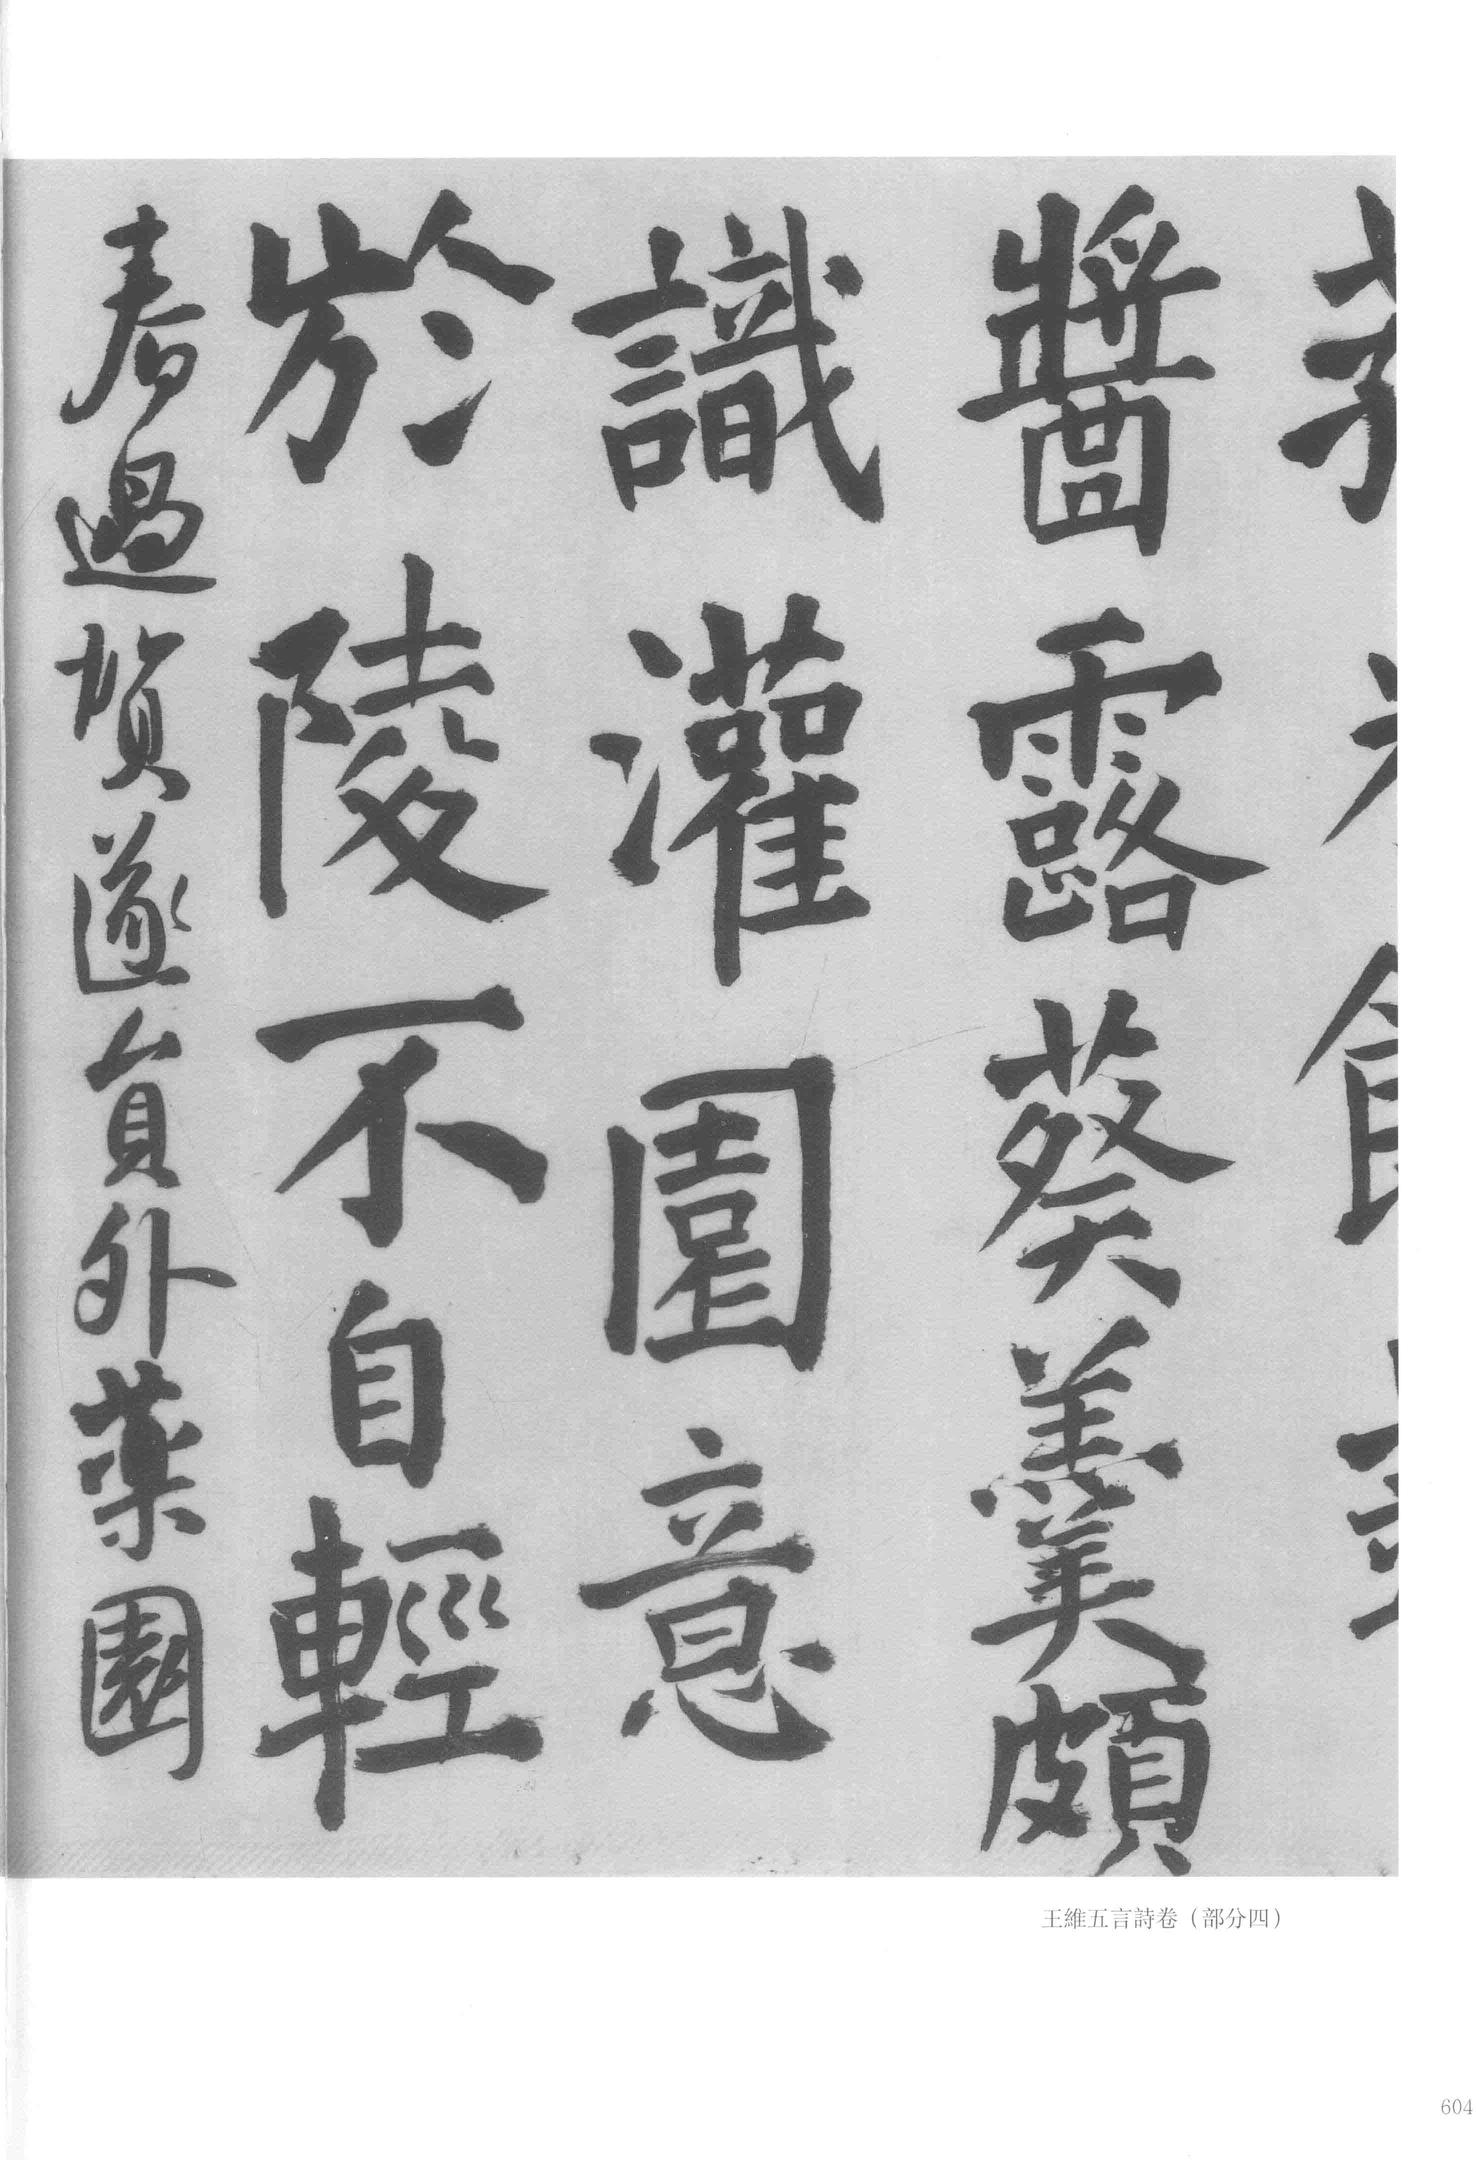 醬露葵羹頗
識灌園意
於陵不自輕
春過賀遂員外薬園
王維五言詩卷（部分四）
604